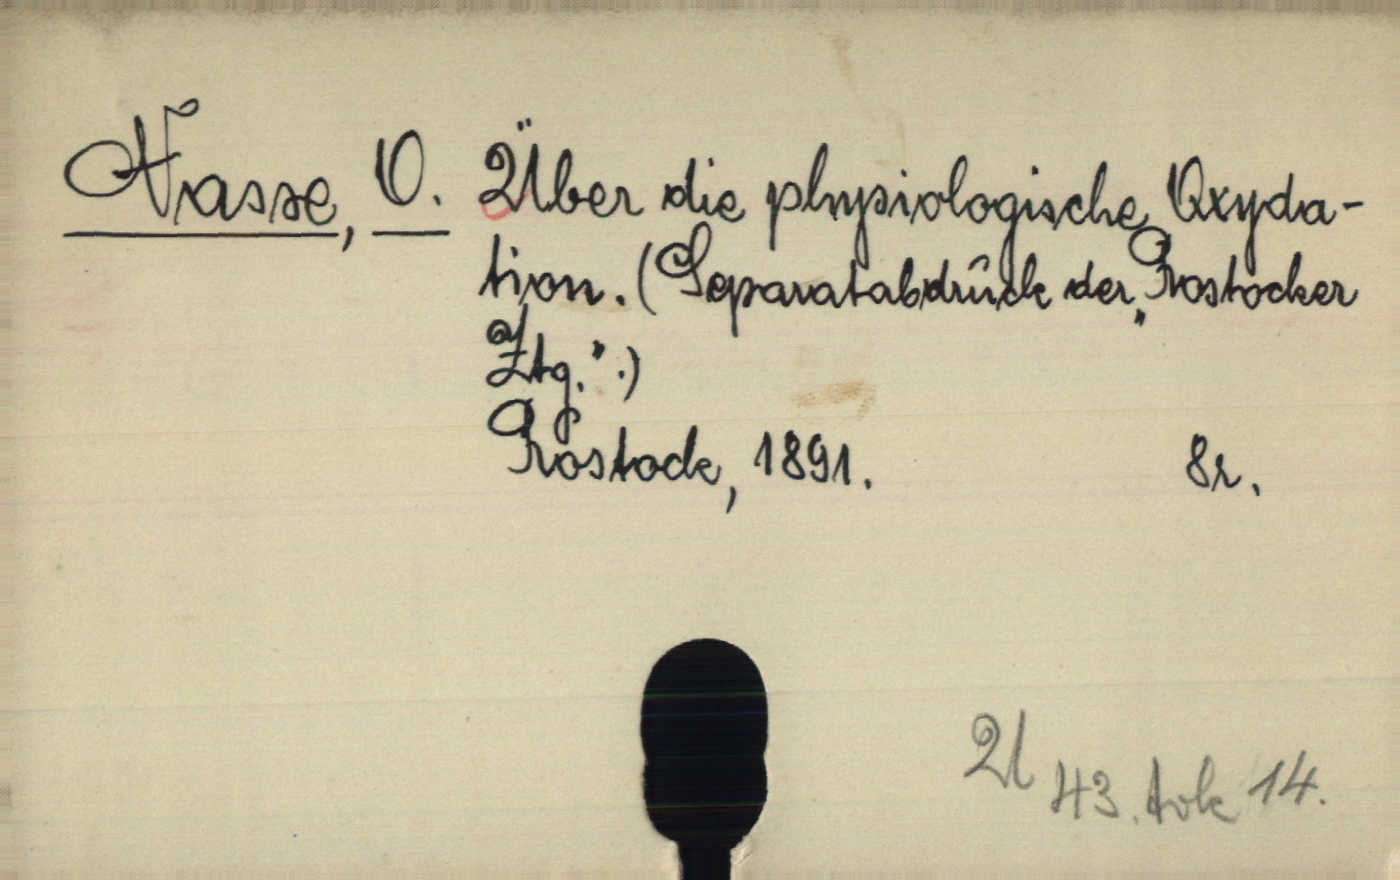 Nasse, O. Über die physiologische Oxyda-
tion. (Separatabdrűck der „Rostocker
Ztg.".)
Rostock, 1891. 8r.
U 43. tok 14.